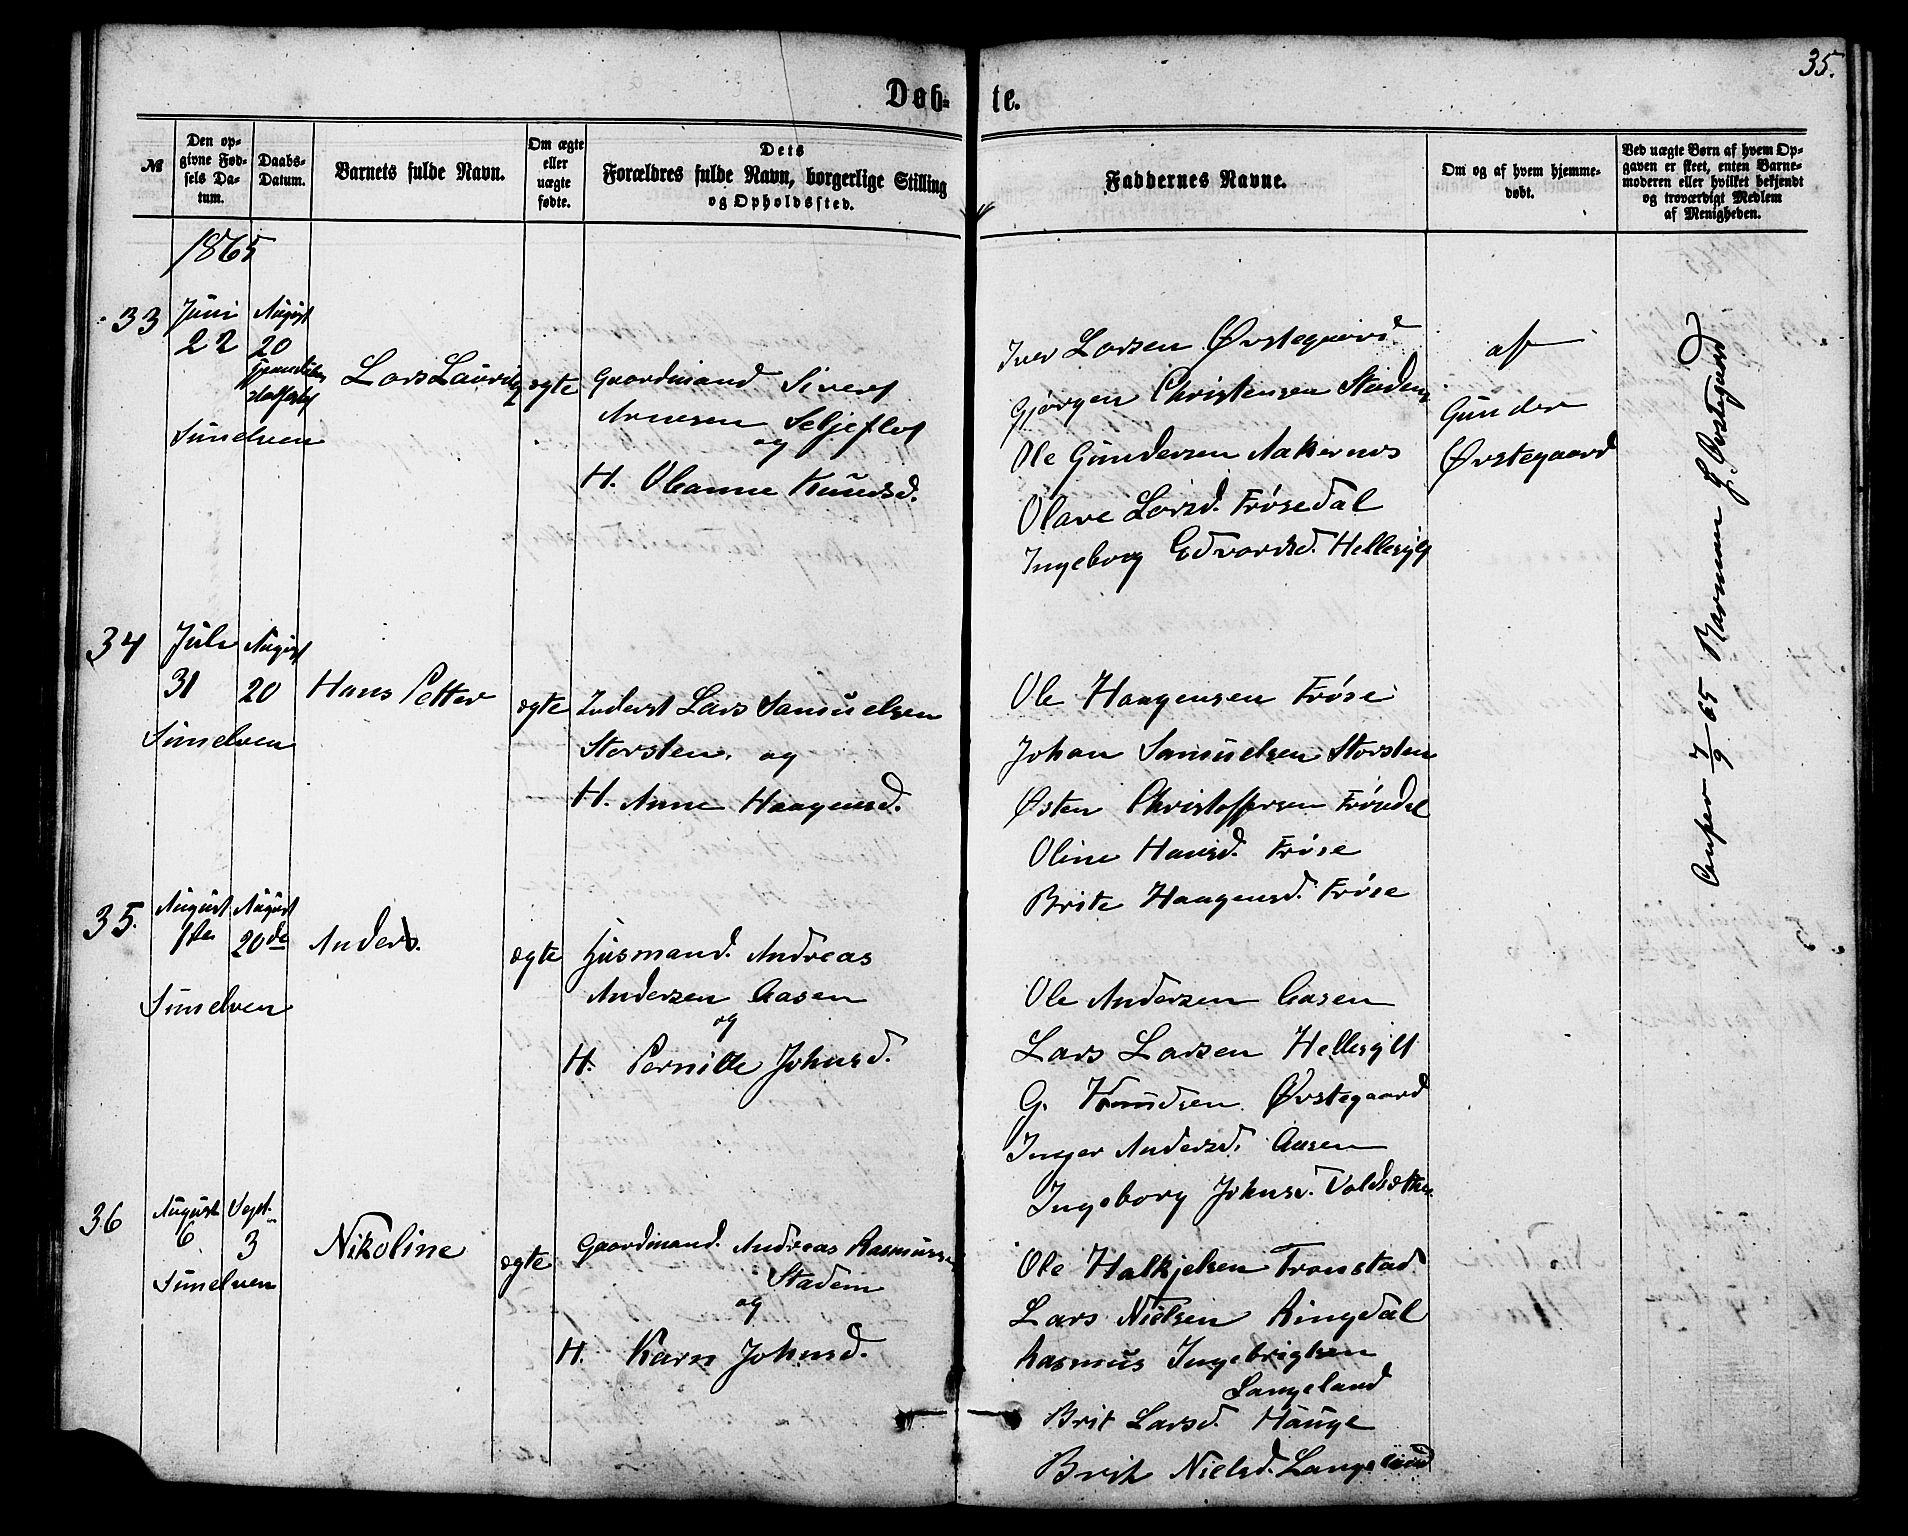 35.
Døb- te.
№
Den op-
givne Fød-
sels Da-
tum.
Daabs-
Datum.
Barnets fulde Navn.
Om ægte
eller
uægte
fødte.
Dets
Forældres fulde Navn, borgerlige Stilling
og Opholdssted.
Faddernes Navne.
Om og af hvem hjemme-
døbt.
Ved uægte Børn af hvem Op-
gaven er skeet, enten Barne-
moderen eller hvilket bekjendt
og troværdigt Medlem
af Menigheden.
1865
33
Juni
22
August
20
Sunelven
Lars Laurits
ægte
Gaardmand Sivert
Arnesen Seljeflot
og
H. Oleanne Knudsd.
Iver Larsen Ørstegaard
Gjørgen Christensen Stadem
Ole Gundersen Aakernes
Olave Larsd. Frøsedal
Ingeborg Edvardsd. Hellesylt
af
Gunder
Ørstegaard
34
Juli
31
August
20
Sunelven
Hans Petter
ægte
Inderst Lars Samuelsen
Storsten. og
H. Anne Haagensd.
Ole Haagensen Frøse
Johan Samuelsen Storsten
Østen Christoffersen Frøsedal
Oline Hansd. Frøse
Brite Haagensd. Frøse
35.
August
1ste
August
20de
Sunelven
Anders.
ægte
Husmand. Andreas
Andersen Aasen
og
H. Pernille Johnsd.
Ole Andersen Aasen
Lars Larsen Hellesylt
G. Knudsen Ørstegaard
Inger Andersd. Aasen
Ingeborg Johnsd. Voldsæther
36
August
6
Sept.
3
Sunelven
Nikoline
ægte
Gaardmand. Andreas Rasmussen
Stadem
og
H. Karn Johnsd.
Ole Halkjelsen Tronstad
Lars Nielsen Ringdal
Rasmus Ingebrigtsen
Langeland
Brit Larsd. Hauge
Brit Nielsd. Langeland
7/9 65 G. Ørstegaard